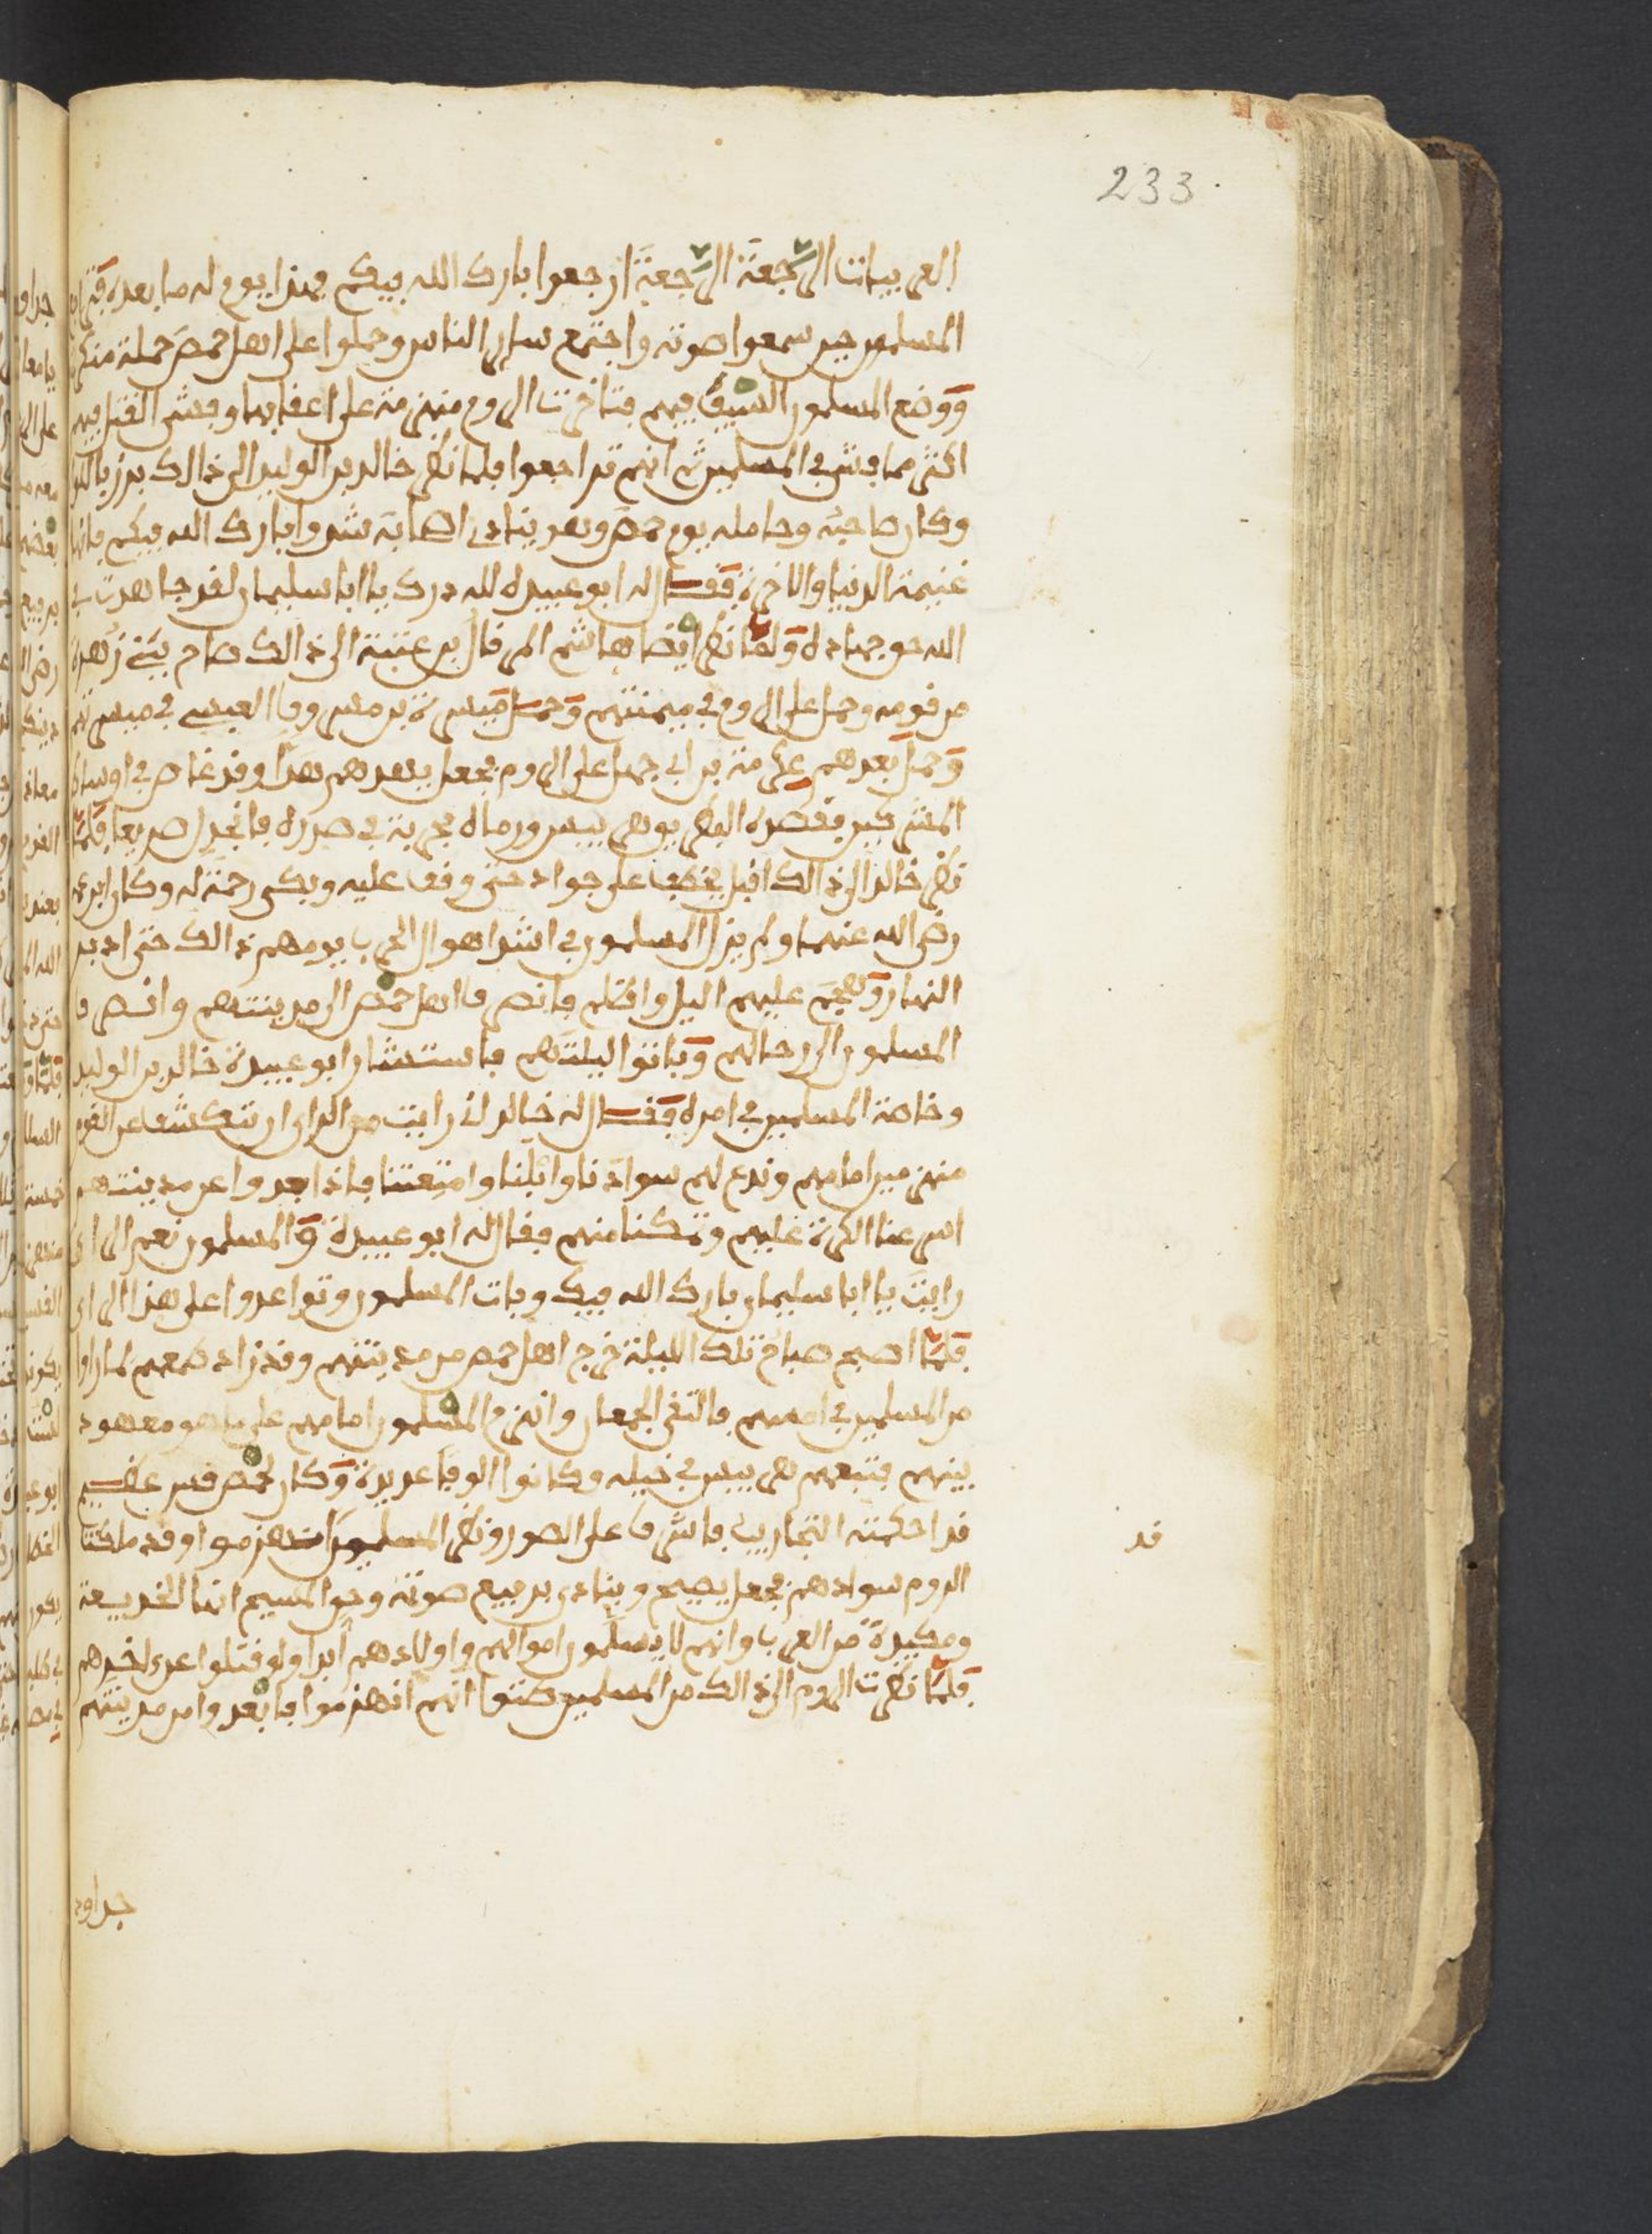 233
العربيات الرَّجعَة الرَّجعَة ارجعوا بارك الله فيكم فهذا يوم له ما بعده
المسلمون حين سمعوا صوته واجتمع ساير الناس وحملوا على اهل حمص حملة منكرة
وَوضع المسلمون السيف فيهم فتاخرت الروم منهزمة على اعقابها وفشى القتل فيهم
اكثر مما فشى في المسلمين ثم انهم تراجعوا فلما نظر خالد بن الوليد الى ذالك برز باللوا
وكان صاحبه وحامله يوم حمص وهو ينادي اصحابه شدوا بارك الله فيكم فانها
غنيمة الدنيا والاخرة فَقـال له ابو عبيدة لله درك يا ابا سليمان لقد جاهدت في
الله حق جهاده وَلمَّا نظر ايضا هاشم المرقال بن عتبة الى ذالك صاح ببني زُهرة
من قومه وحمل على الروم في ميمنتهم وَحمـل ميسرة بن مسروق العبسي في ميسرتهم
وَحمل بعدهم عكرمة بن ابي جهل على الروم فجعل يهدهم هدًّا وقد غاص في اوساط
المشركين فقصده البطريو هربيس ورماه بحربة في صدره فانجدل صريعا فَلمَّا
نظر خالد الى ذالك اقبل يخطف على جواده حتى وقف عليه وبكى رحمة له وكان ابن عمه
رضي الله عنهما ولم يزل المسلمون في اشد اهوال الحرب يومهم ذالك حتى ادبر
النهار وَهجَم عليهم اليل واظلم فانصرف اهل حمص الى مدينتهم وانصرف
المسلمون الى رحالهم وَباتوا ليلتَهم فاستشار ابو عبيدة خالد بن الوليد
وخاصة المسلمين في امره فَقـال له خالد اني رايت من الراي ان نتكشف عن القوم
منهزمين امامهم وندع لهم سوادَنا وابلنا وامتعتنا فاذا بعدوا عن مدينتهم
اسرعنا الكرة عليهم وتمكنا منهم فقال له ابو عبيدة وَالمسلمون نعم الراي
رايتَ يا ابا سليمان بارك الله فيك وبات المسلمون وتواعدوا على هذا الراي
فَلمَّا اصبح صباح تلك الليلة خرج اهل حمص من مدينتهم وقد زاد طمعهم لما راوا
من المسلمين في امسهم فالتقى الجمعان وانهزم المسلمون امامهم على ما هو معهود
بينهم فتبعهم هربيس في خيله وكانوا الوفا عديدة وَكان لحمص قس عظيم
قد احكمته التجاريب فاشرف على الصور ونظر المسلمين انهزموا وقد ملكت
قد
الروم سوادهم فجعل يصيح وينادي برفيع صوته وحق المسيح انها الخديعة
ومكيدة من العرب وانهم لا يسلمون اموالهم واولادهم ابدا ولو قتلوا عن اخرهم
فَلمَّا نظرت الروم الى ذالك من المسلمين ظنوا انهم انهزموا فابعدوا من مدينتهم